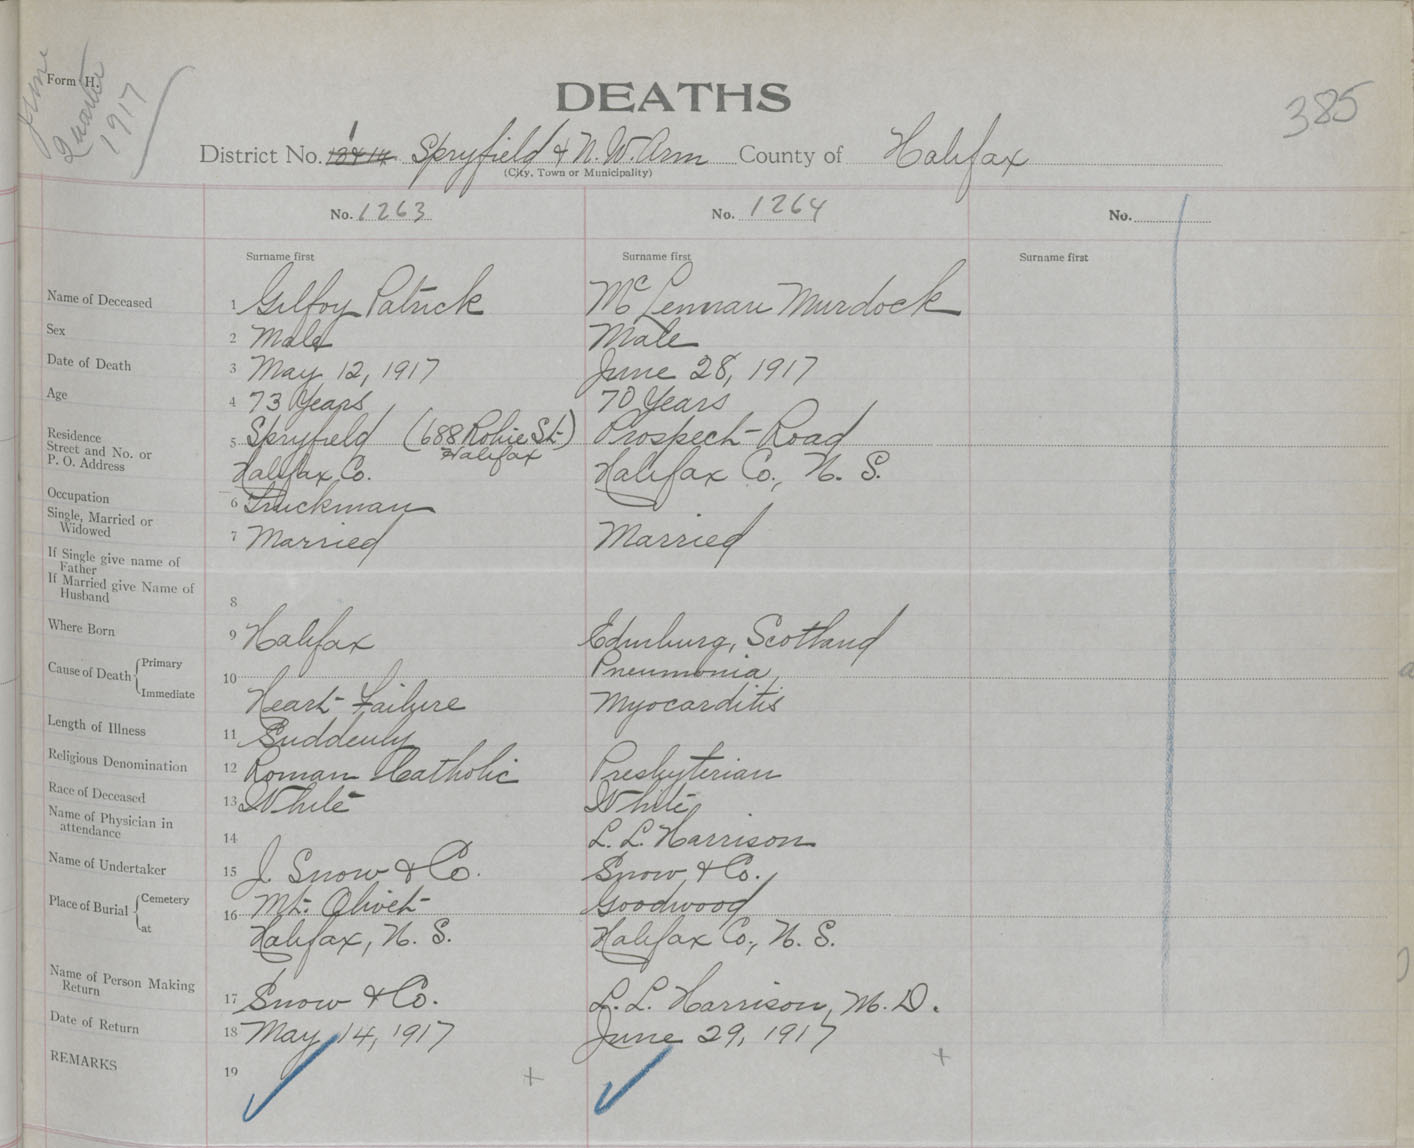 June
Quarter
1917
Form H.
DEATHS
385
District No. 1 Spryfield & N. W. Arm County of Halifax
(City, Town or Municipality)
No. 1263 No. 1264 No.
Surname first Surname first Surname first
Name of Deceased 1 Gilfoy Patrick McLennan Murdock
Sex 2 Male Male
Date of Death 3 May 12, 1917 June 28, 1917
Age 4 73 Years 70 Years
Residence
Street and No. or
P. O. Address
5 Spryfield (688 Robie St.) Prospect Road
Halifax
Halifax Co. Halifax Co., N. S.
Occupation 6 Truckman
Single, Married or
Widowed
7 Married Married
If Single give name of
Father
If Married give Name of
Husband
8
Where Born 9 Halifax Edinburg, Scotland
Cause of Death { Primary 10 Pneumonia,
Immediate Heart Failure Myocarditis
Length of Illness 11 Suddenly
Religious Denomination 12 Roman Catholic Presbyterian
Race of Deceased 13 White White
Name of Physician in
attendance
14 L. L. Harrison
Name of Undertaker 15 J. Snow & Co. Snow & Co.
Place of Burial { Cemetery 16 Mt. Olivet Goodwood
at Halifax, N. S. Halifax Co., N. S.
Name of Person Making
Return
17 Snow & Co. L. L. Harrison, M. D.
Date of Return 18 May 14, 1917 June 29, 1917
REMARKS 19